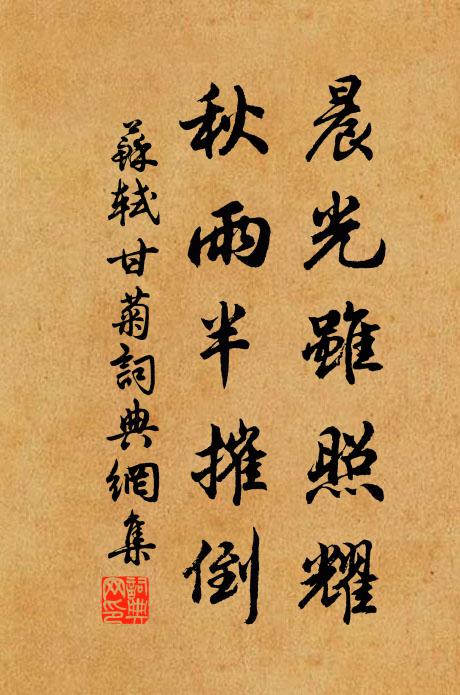 晨光雖照耀
秋雨半摧倒
蘇軾甘菊詞典網集
詞典網印